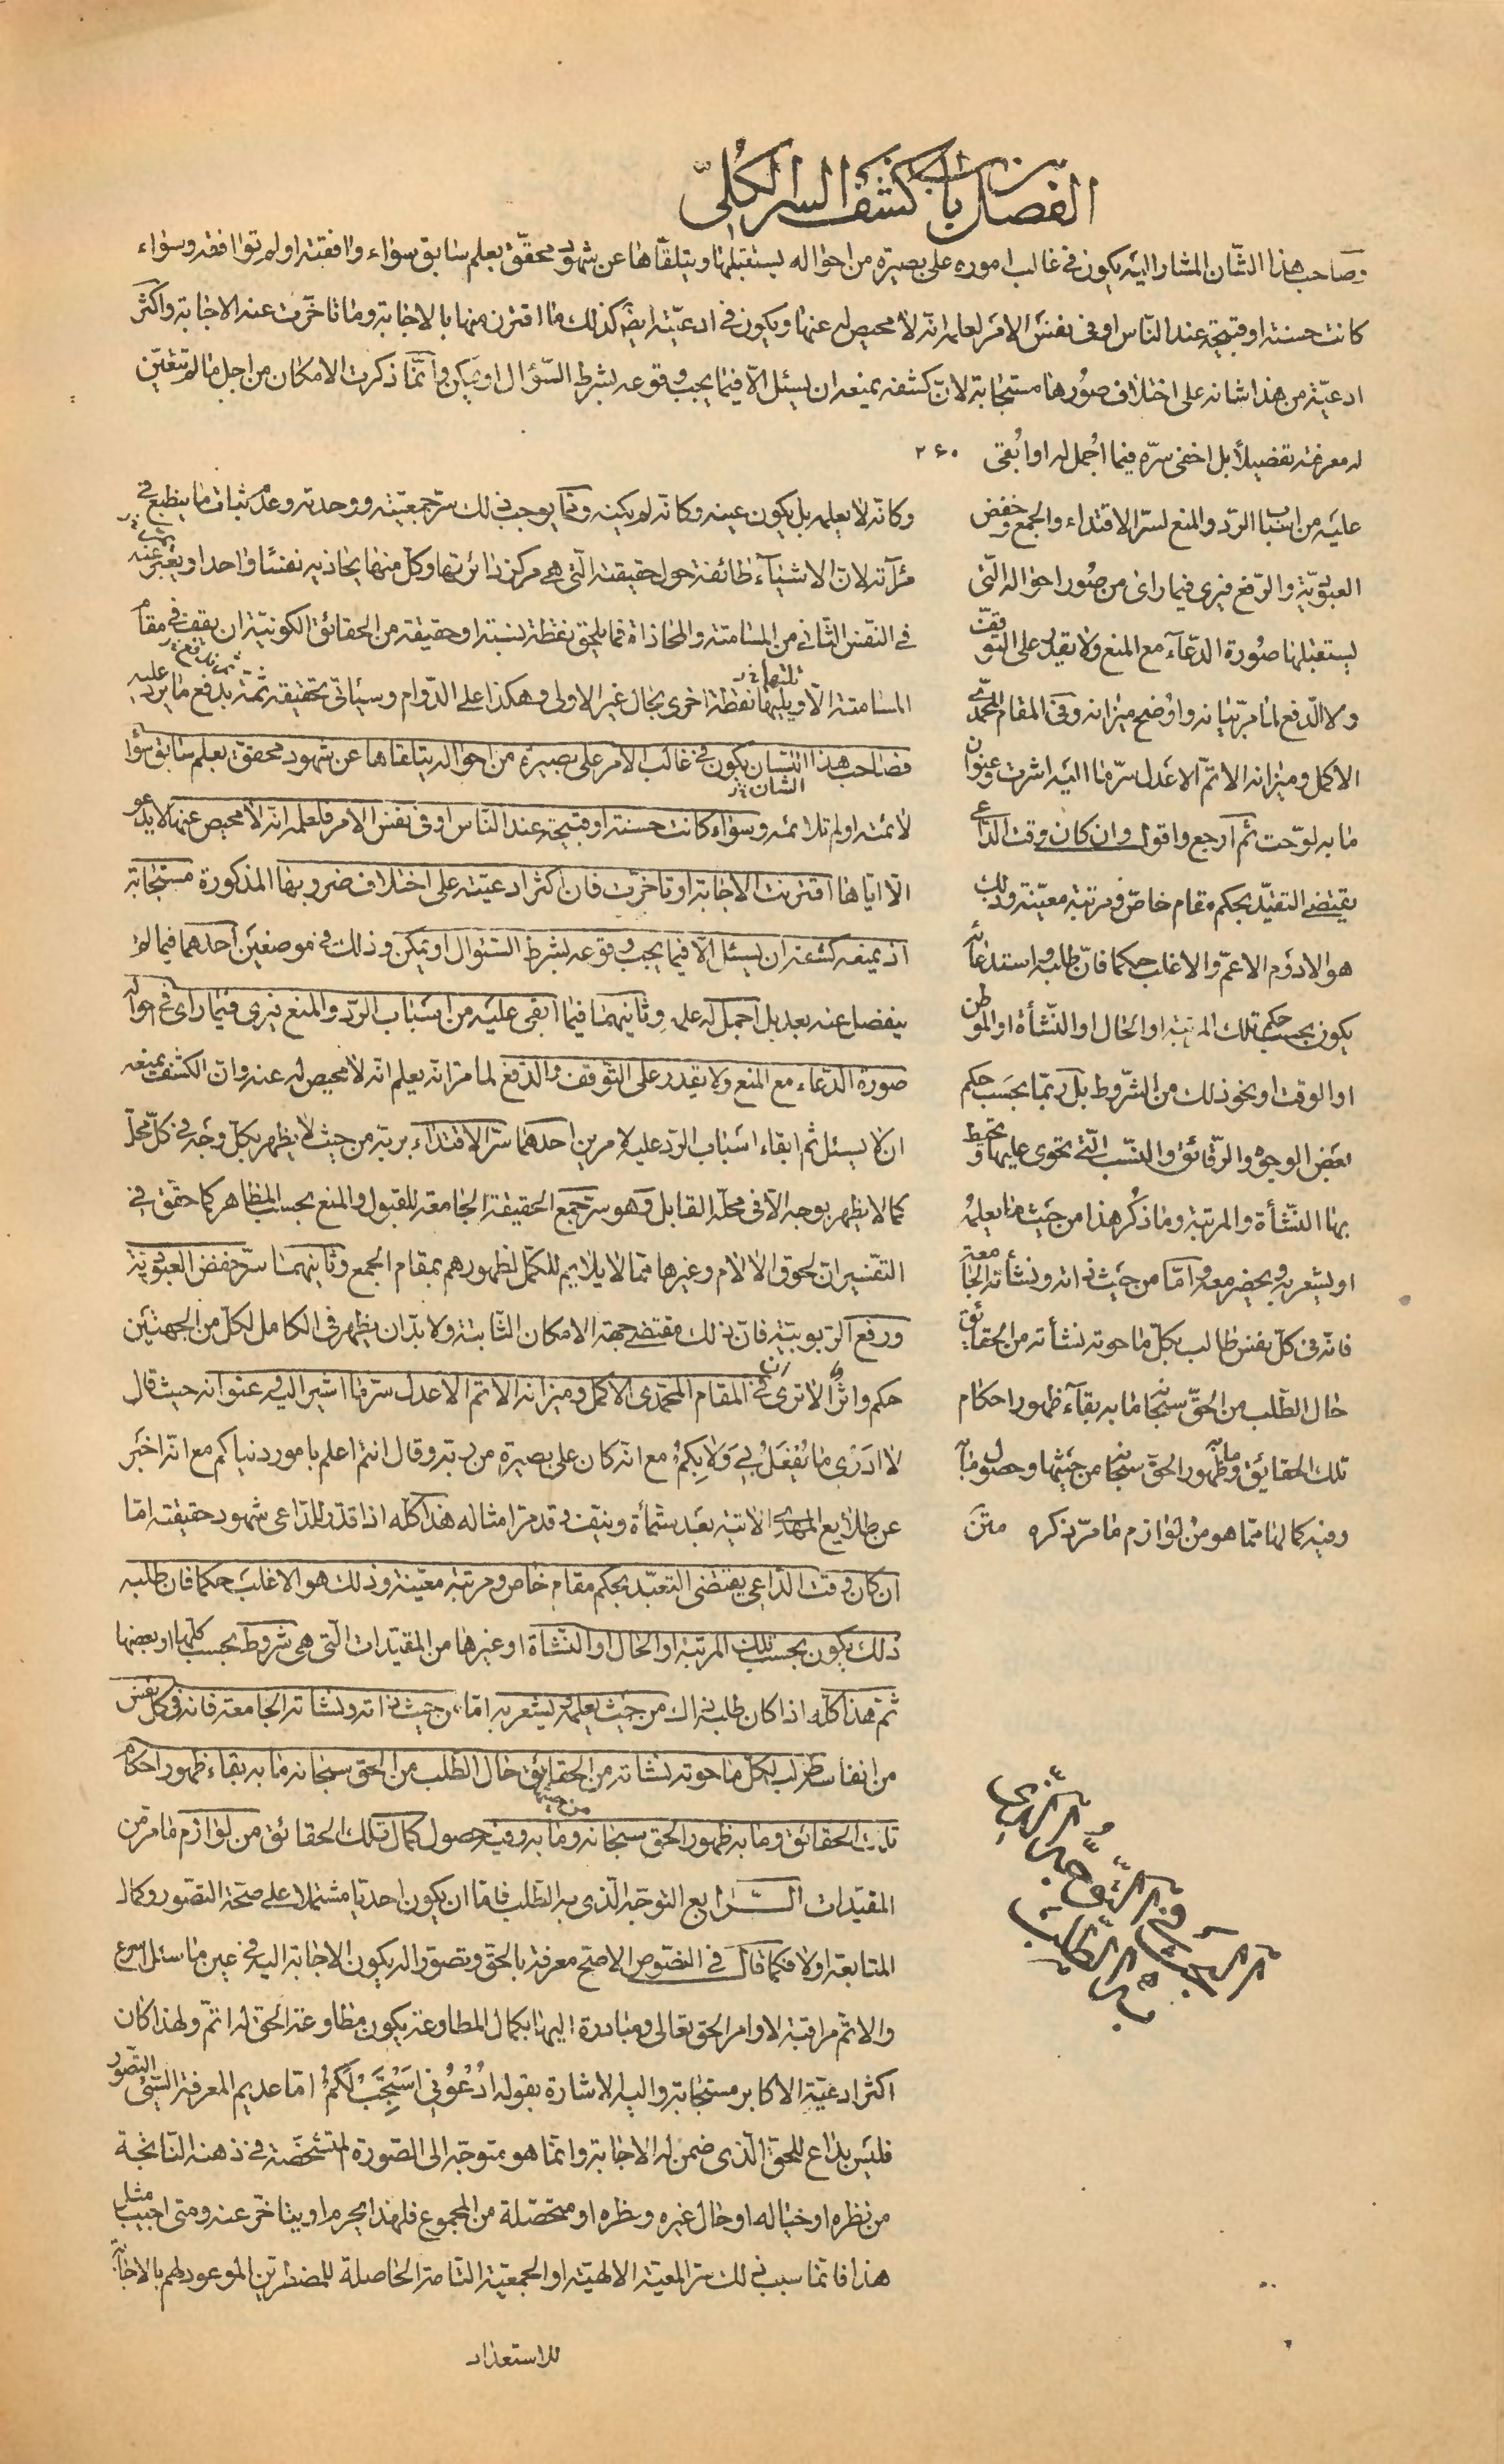 الفصل من باب كشف السر الكلىّ
وصاحب هذا الشّان المشار اليه يكون فى غالب اموره على بصيرة من احواله يستقبلها ويتلقّاها عن شهود محقّق بعلم سابق سواء وافقته او لم توافقه وسواء
كانت حسنة او قبيحة عند النّاس او فى نفس الامر لعلمه انّه لا محيص له عنها ويكون فى ادعيته ايضا كذلك ما اقترن منها بالاجابة وما تاخّرت عنه الاجابة واكثر
ادعيّة من هذا شانه على اختلاف صورها مستجابة لانّ كشفه يمنعه ان يسئل الّا فيما يجب وقوعه بشرط السّؤال او يمكن وانّما ذكرت الامكان من اجل ما لم تتعيّن
له معرفته تفصيلاً بل اخفى سرّه فيما اُجمل له او اُبقى ٢٦٠
عليه من اسباب الردّ والمنع لسرّ الاقتداء والجمع وخفض
العبوديّة والرّفع فيرى فيما راى من صور احواله الّتى
يستقبلها صورة الدّعاء مع المنع ولا يقدر على التّوقّف
ولا الدّفع لما مرّ بيانه واوضح ميزانه وفى المقام المحمّدىّ
الاكمل وميزانه الاتمّ الاعدل سرّ ما اليه اشرت وعنوان
ما به لوّحت ثم ارجع واقول وان كان وقت الدّاعى
يقتضى التقيّد بحكم مقام خاصّ ومرتبة معيّنة وذلك
هو الادوم الاعمّ والاغلب حكما فانّ طلبه واستدعائه
يكون بحسب حكم تلك المرتبة او الحال او النّشأة او الموطن
او الوقت او نحو ذلك من الشّروط بل ربّما بحسب حكم
بعض الوجوه والرّقائق والنّسب الّتى تحوى عليها وتحيط
بها النّشأة والمرتبة وما ذُكر هذا من حيث ما يعلمُه
او يشعر به ويحضر معه وامّا من حيث ذاته ونشأته الجامعة
فانّه فى كلّ نفس طالب بكلّ ما حوته نشأته من الحقائق
حال الطّلب من الحقّ سبحانه ما به بقاء ظهور احكام
تلك الحقايق وما به ظهور الحقّ سبحانه من حيثها وحصول ما به
وفيه كمالها ممّا هو من لوازم ما مرّ ذكره متن
وكانّه لا يعلمه بل يكون عينه وكانّه لم يكنه وممّا يوجب ذلك سرّ جمعيّته ووحدته وعدم ثبات ما ينطبع فى
مرآته لانّ الاشياء طائفة حول حقيقته الّتى هى مركز دائرتها وكلّ منها يحاذيه نفسًا واحدا ويتغيّر عنه
فى النّفس الثّانى من المسامتة والمحاذاة فما يلحق نقطة نسبة او حقيقة من الحقائق الكونيّة ان يقف فى مقام
المسامتة الّا ويليها نقطة اخرى بحال غير الاولى وهكذا على الدّوام وسيأتى تحقيقه ثمّة بدفع ما يرد عليه
فصاحب هذا الشان يكون فى غالب الامر على بصيرة من احواله يتلقاها عن شهود محقق بعلم سابق سواء
لائمته او لم تلائمه وسواء كانت حسنة او قبيحة عند النّاس او فى نفس الامر فلعلمه انّه لا محيص عنها لا يدعو
الّا ايّاها اقترنت الاجابة او تاخرت فان اكثر ادعيته على اختلاف ضروبها المذكورة مستجابة
اذ يمنعه كشفه ان يسئل الّا فيما يجب وقوعه بشرط السّؤال او يمكن وذلك فى موضعين احدهما فيما لم
ينفصل عنه بعد بل اجمل له علمه وثانيهما فيما ابقى عليه من اسباب الردّ والمنع فيرى فيما راى فى احواله
صورة الدّعاء مع المنع ولا يقدر على التّوقف والدّفع لما مرّ انّه يعلم انّه لا محيص له عنه وانّ الكشف يمنعه
ان لا يسئل ثم ابقاء اسباب الردّ عليه لامرين احدهما سرّ الاقتداء بربّه من حيث لا يظهر بكلّ وجه فى كلّ محلّ
كما لا يظهر بوجه الّا فى محلّه القابل وهو سرّ جمع الحقيقة الجامعة للقبول والمنع بحسب المظاهر كما حقّق فى
التّفسير ان لحوق الآلام وغيرها ممّا لا يلايم للكمّل لظهورهم بمقام الجمع وثانيهما سرّ خفض العبوديّة
ورفع الربوبيّة فانّ ذلك مقتضى جهة الامكان الثّابتة ولا بدّ ان يظهر فى الكامل لكلّ من الجهتين
حكم واثر الا ترى ان فى المقام المحمّدى الاكمل وميزانه الاتم الاعدل سرّ ما اشير اليه وعنوانه حيث قال
لا ادرى ما يُفعَلُ بى ولا بِكُم مع انّه كان على بصيرة من ربّه وقال انتم اعلم بامور دنياكم مع انّه اخبر
عن طلايع المهدى الاتية بعد ستمأة ونيف وقد مرّ امثاله هذا كلّه اذا قدّر للدّاعى شهود حقيقته امّا
ان كان وقت الدّاعى يقتضى التقيّد بحكم مقام خاص ومرتبة معيّنة وذلك هو الاغلب حكما فان طلبه
ذلك يكون بحسب تلك المرتبة او الحال او النّشاة او غيرها من المقيّدات الّتى هى شروط بحسب كلّها او بعضها
ثم هذا كلّه اذا كان طلبه ذلك من حيث يعلم او يشعر به امّا من حيث ذاته ونشاته الجامعة فانه فى كل نفس
من انفاسه طالب لكلّ ما حوته نشاته من الحقايق حال الطّلب من الحق سبحانه ما به بقاء ظهور احكام
تلك الحقائق وما به ظهور الحق سبحانه من حيثها وما به وفيه حصول كمال تلك الحقائق من لوازم ما مرّ من
المقيّدات الرّابع التوجّه الّذى به الطّلب فامّا ان يكون احديّا مشتملا على صحّة التصّور وكمال
المتابعة او لا فكما قال فى النصّوص الاصح معرفة بالحق وتصوّرا له يكون الاجابة اليه فى عين ما سئل اسرع
والاتمّ مراقبة لاوامر الحق تعالى ومبادرة اليها بكمال المطاوعة يكون مطاوعة الحق له اتمّ ولهذا كان
اكثر ادعيّة الاكابر مستجابة واليه الاشارة بقوله اُدْعُونى اَسْتَجِبْ لَكُمْ امّا عديم المعرفة السّئ التصّور
فليس بداع للحقّ الّذى ضمن له الاجابة وانّما هو متوجّه الى الصّورة المتشخّصة فى ذهنه النّاتجة
من نظره او خياله او حال غيره ونظره او متحصّلة من المجموع فلهذا يحرم او يتاخّر عنه ومتى اجيب مثل
هذا فانّما سبب ذلك سرّ المعيّة الالهيّة او الجمعيّة التّامة الحاصلة للمضطرّين الموعود لهم بالاجابة
الرّابع فى التّوجّه الّذى
به الطّلب
للاستعداد